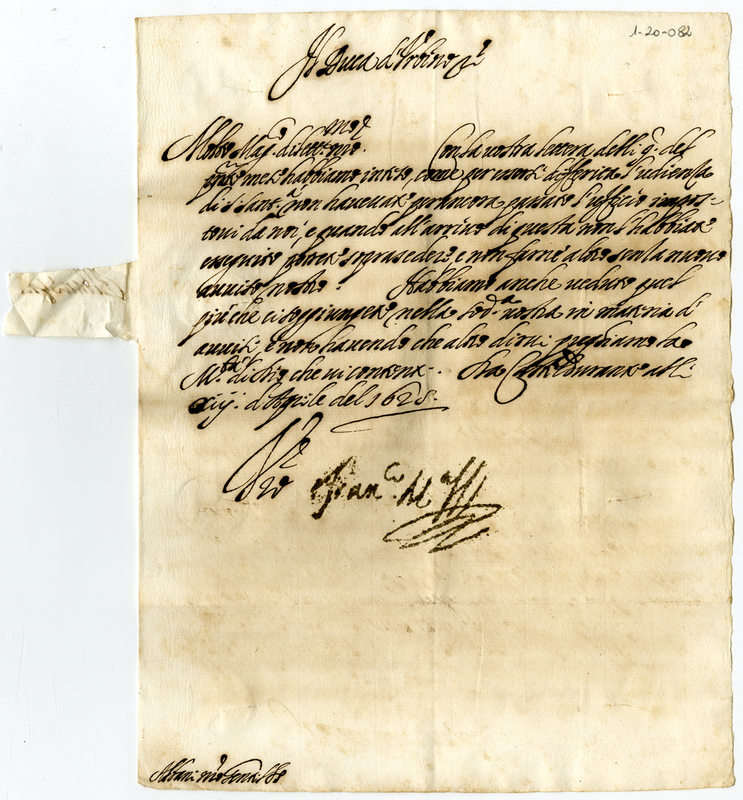 1-20-082
Il Duca d'Urbino &c
Molto Mag.co dilett.mo n̄ro. Con la vostra lettera delli 9. del
pñte mese habbiamo inteso, come per esserli differita l'udienza
di S. Sant.à non havevate per ancora passato l'ufficio impos-
toui da noi, e quando all'arriuo di questa non l'habbiate
eseguito potrete soprasedere e non farne altro senza nuouo
auuiso nostro. Habbiamo anche ueduto quel
più che ci soggiungete nella sod.a vostra in materia d'
auuisi, e non hauendo che altro dirui preghiamo la
M.tà di Dio che ui contenti. Da Castel Durante alli
xiij. d'Aprile del 1628.
V̄ro
Fran.co M.a
Abbati